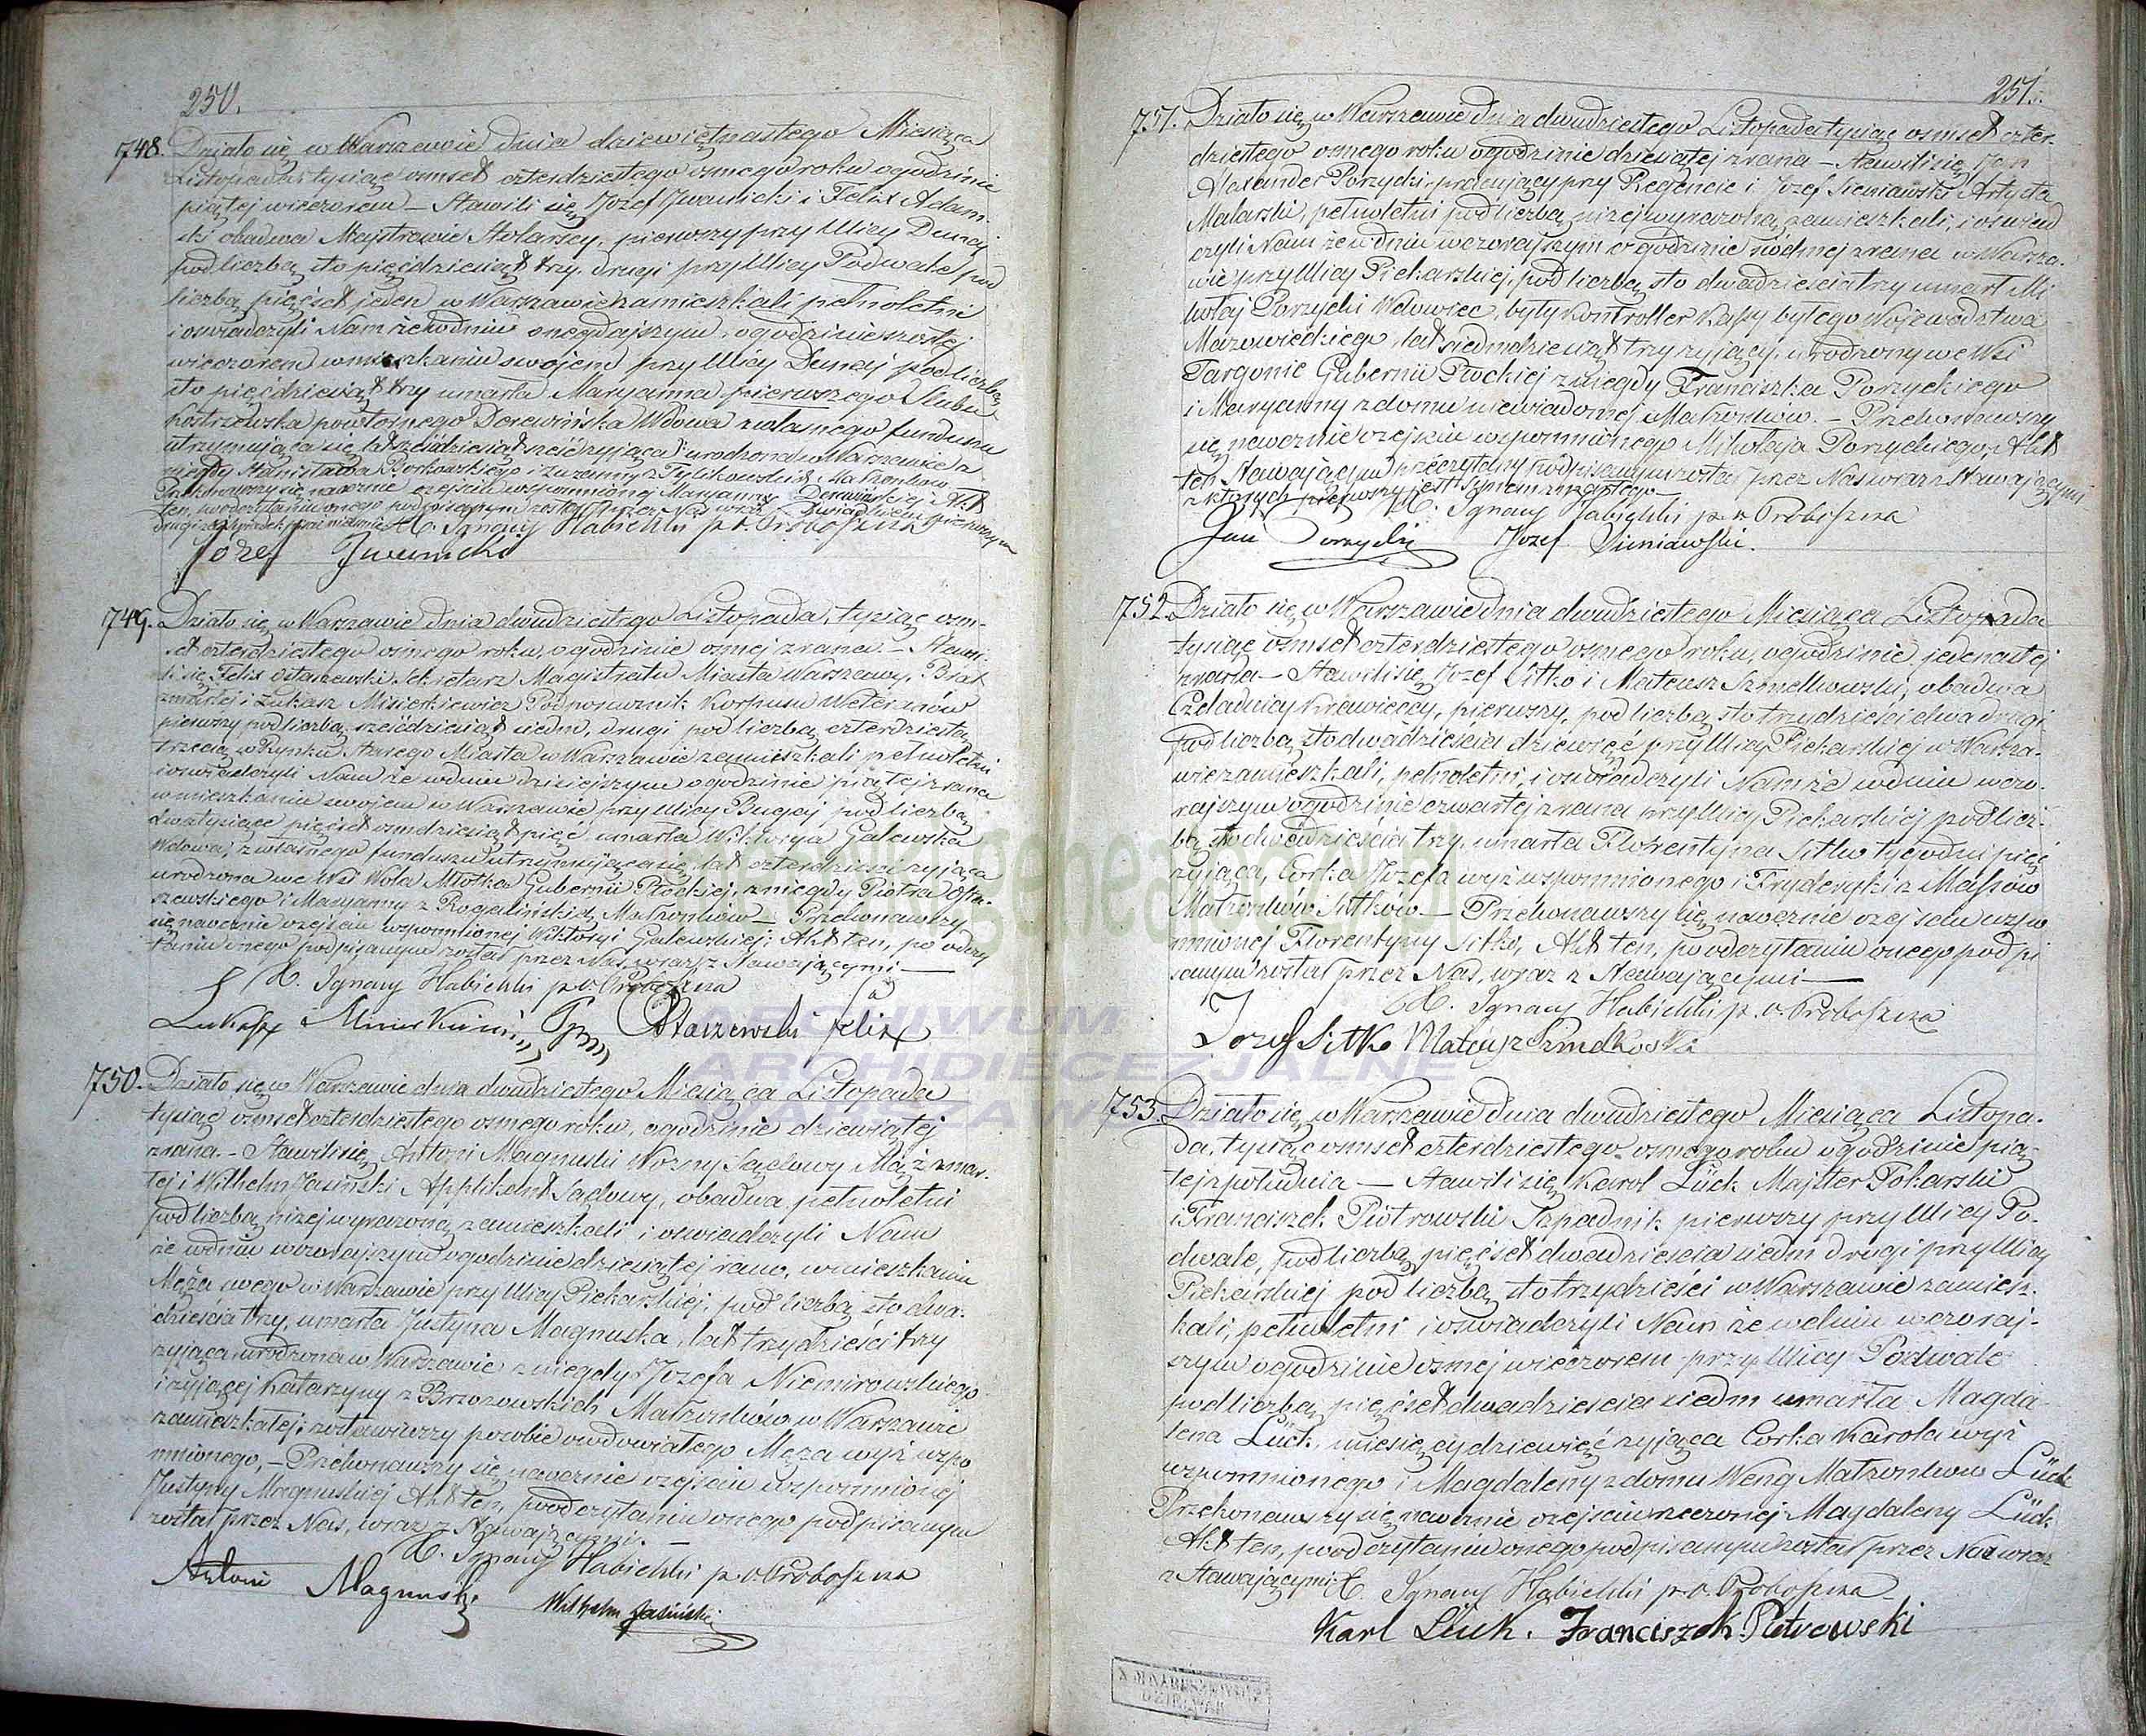 250.
748. Działo się w Warszawie dnia dziewiętnastego Miesiąca
Listopada tysiąc ośmset czterdziestego osmego roku o godzinie
piątej wieczorem – Stawili się Józef Iwanicki i Felix Adam-
ski obadwa Majstrowie Stolarscy, pierwszy przy Ulicy Dunaj
pod liczbą sto pięćdziesiąt trzy, drugi przy Ulicy Podwale pod
liczbą pięćset jeden w Warszawie zamieszkali pełnoletni
i oświadczyli Nam że w dniu onegdajszym, o godzinie szóstej
wieczorem w mieszkaniu swojem przy Ulicy Dunaj pod liczbą
sto pięćdziesiąt trzy umarła Maryanna pierwszego Ślubu
Kostrzewska powtórnego Derewińska Wdowa z własnego funduszu
utrzymująca się, lat sześćdziesiąt sześć żyjąca urodzona w Warszawie z
niegdy Stanisława Borkowskiego i Zuzanny z Małżonków
Przekonawszy się naocznie o zejściu wspomnionej Maryanny Derewińskiej Akt
ten, po odczytaniu onego podpisanym został przez Nas wraz z pierwszym
drugi zaś pisać nie umie X. Ignacy Habichlii p. o. Proboszcza
Józef Iwanicki
749. Działo się w Warszawie dnia dwudziestego Listopada, tysiąc ośm-
set czterdziestego osmego roku, o godzinie osmej z rana. – Stawi-
li się Felix Ostaszewski Sekretarz Magistratu Miasta Warszawy, Brat
zmarłej i Łukasz Misierkiewicz Podporucznik Korpusu Weteranów
pierwszy pod liczbą sześćdziesiąt siedm, drugi pod liczbą czterdzieści
trzecią w Rynku Starego Miasta w Warszawie zamieszkali pełnoletni
i oświadczyli Nam że w dniu dzisiejszym o godzinie piątej z rana
w mieszkaniu swojem w Warszawie przy Ulicy Bugaj pod liczbą
dwa tysiące pięćset ośmdziesiąt pięć umarła Wiktorya Galewska
Wdowa, z własnego funduszu utrzymująca się, lat czterdzieści żyjąca
urodzona we Wsi Wola Młotka Gubernii Płockiej, z niegdy Piotra Osta-
szewskiego i Maryanny z Rogalińskich Małżonków – Przekonawszy
się naocznie o zejściu wspomnionej Wiktoryi Galewskiej, Akt ten, po odczy
taniu onego podpisanym został przez Nas, wraz z Stawającymi –
X. Ignacy Habichlii p. o. Proboszcza
Łukasz Ostaszewski Felix
750. Działo się w Warszawie dnia dwudziestego Miesiąca Listopada
tysiąc ośmset czterdziestego osmego roku, o godzinie dziewiątej
z rana. – Stawili się Antoni Magnuski Woźny Sądowy Mąż zmar-
łej i Wilhelm Jasiński Applikant Sądowy, obadwa pełnoletni
pod liczbą niżej wyrażoną zamieszkali i oświadczyli Nam
że w dniu wczorajszym o godzinie dziesiątej rano, w mieszkaniu
Męża swego w Warszawie przy Ulicy Piekarskiej, pod liczbą sto dwa-
dzieścia trzy, umarła Justyna Magnuska, lat trzydzieści trzy
żyjąca urodzona w Warszawie z niegdy Józefa Niemirowskiego
i żyjącej Katarzyny z Brzozowskich Małżonków w Warszawie
zamieszkałej; zostawiwszy po sobie owdowiałego Męża wyż wspo
mnionego, – Przekonawszy się naocznie o zejściu wspomnionej
Justyny Magnuskiej Akt ten, po odczytaniu onego podpisanym
został przez Nas, wraz z Stawającymi. –
X. Ignacy Habichlii p. o. Proboszcza
Antoni Magnuski Wilhelm Jasiński
251.
751. Działo się w Warszawie dnia dwudziestego Listopada tysiąc ośmset czter-
dziestego osmego roku o godzinie dziesiątej z rana – Stawili się Jan
Alexander Porzycki pracujący przy Regencie i Józef Sieniawski Artysta
Malarski, pełnoletni pod liczbą niżej wyrażoną zamieszkali, i oświad
czyli Nam że w dniu wczorajszym o godzinie siódmej z rana w Warsza-
wie przy Ulicy Piekarskiej, pod liczbą sto dwadzieścia trzy umarł Mi
kołaj Porzycki Wdowiec, były Kontroller Kassy byłego Województwa
Mazowieckiego, lat siedmdziesiąt trzy żyjący, urodzony we Wsi
Targonie Gubernii Płockiej z niegdy Franciszka Porzyckiego
i Maryanny z domu niewiadomej Małżonków. – Przekonawszy
się naocznie o zejściu wspomnionego Mikołaja Porzyckiego, Akt
ten Stawającym przeczytany podpisanym został przez Nas wraz z Stawającymi
z których pierwszy jest Synem zmarłego
X. Ignacy Habichlii p. o. Proboszcza
Jan Porzycki Józef Sieniawski.
752. Działo się w Warszawie dnia dwudziestego Miesiąca Listopada
tysiąc ośmset czterdziestego osmego roku, o godzinie jedenastej
z rana – Stawili się Józef Sitko i Mateusz Szmelkowski, obadwa
Czeladnicy Krawieccy, pierwszy, pod liczbą sto trzydzieści dwa drugi
pod liczbą sto dwadzieścia dziewięć przy Ulicy Piekarskiej w Warsza-
wie zamieszkali, pełnoletni, i oświadczyli Nam że w dniu wczo-
rajszym o godzinie czwartej z rana przy Ulicy Piekarskiej pod licz-
bą sto dwadzieścia trzy, umarła Florentyna Sitko tygodni pięć
żyjąca, Córka Józefa wyż wspomnionego i Fryderyki z
Małżonków Sitków. – Przekonawszy się naocznie o zejściu wspo
mnionej Florentyny Sitko, Akt ten, po odczytaniu onego podpi
sanym został przez Nas, wraz z Stawającymi –
X. Ignacy Habichlii p. o. Proboszcza
Jozef Sitko Mateusz
753. Działo się w Warszawie dnia dwudziestego Miesiąca Listopa-
da, tysiąc ośmset czterdziestego osmego roku o godzinie pią-
tej z południa – Stawili się Karol Lück Majster Tokarski
i Franciszek Piotrowski Szpadnik pierwszy przy Ulicy Po-
dwale, pod liczbą pięćset dwadzieścia siedm drugi przy Ulicy
Piekarskiej pod liczbą sto trzydzieści w Warszawie zamiesz-
kali, pełnoletni i oświadczyli Nam że w dniu wczoraj-
szym o godzinie osmej wieczorem przy Ulicy Podwale
pod liczbą pięćset dwadzieścia siedm umarła Magda-
lena Lück, miesięcy dziewięć żyjąca Córka Karola wyż
wspomnionego i Magdaleny z domu Weng Małżonków Lück
Przekonawszy się naocznie o zejściu rzeczonej Magdaleny Lück
Akt ten, po odczytaniu onego podpisanym został przez Nas wraz
z Stawającymi X. Ignacy Habichlii p. o. Proboszcza
Karl Lück. Franciszek Piotrowski
genea
ARCHIWUM
ARCHIDIECEZJALNE
WARSZAWSKIE